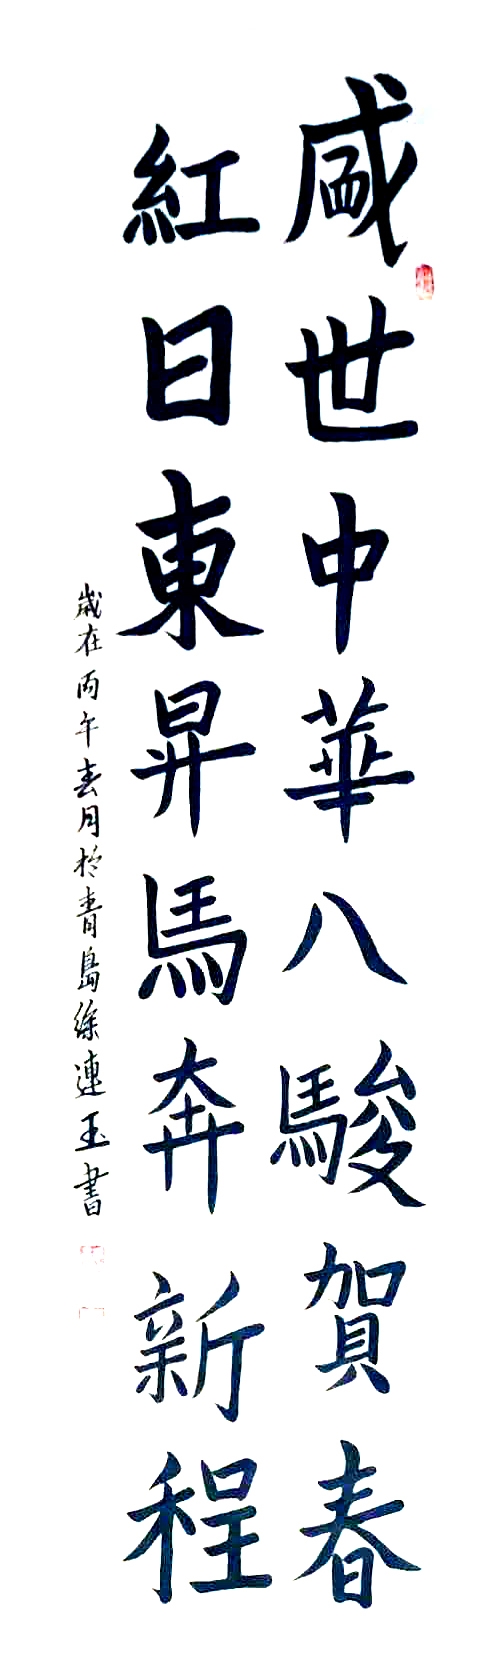 盛世中華八駿賀春
紅日東昇馬奔新程
歲在丙午春月於青島徐連玉書